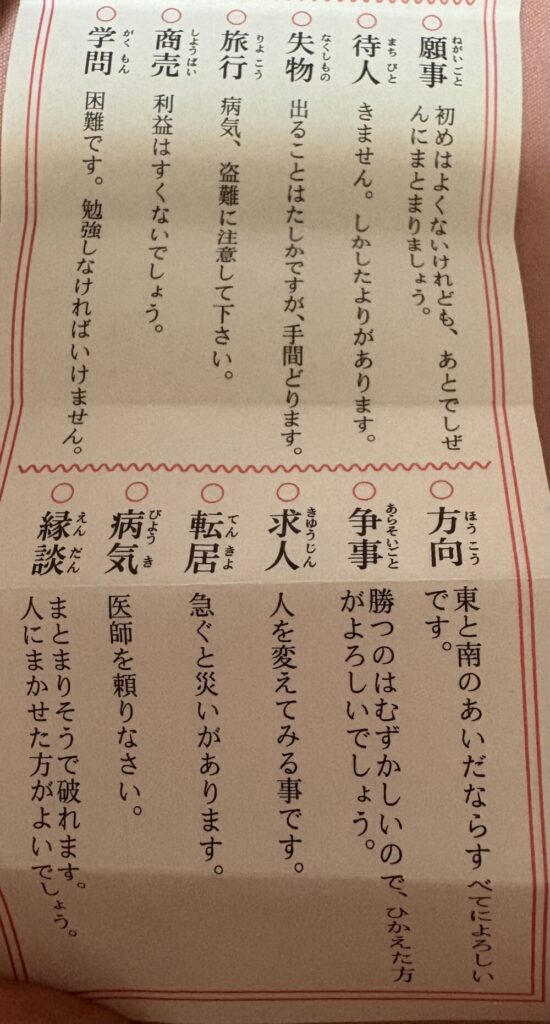 ○願事 ねがいごと
初めはよくないけれども、あとでしぜ
んにまとまりましょう。
○待人 まちびと
きません。しかしたよりがあります。
○失物 なくしもの
出ることはたしかですが、手間どります。
○旅行 りょこう
病気、盗難に注意して下さい。
○商売 しょうばい
利益はすくないでしょう。
○学問 がくもん
困難です。勉強しなければいけません。
○方向 ほうこう
東と南のあいだならすべてによろしい
です。
○争事 あらそいごと
勝つのはむずかしいので、ひかえた方
がよろしいでしょう。
○求人 きゆうじん
人を変えてみる事です。
○転居 てんきよ
急ぐと災いがあります。
○病気 びようき
医師を頼りなさい。
○縁談 えんだん
まとまりそうで破れます。
人にまかせた方がよいでしょう。